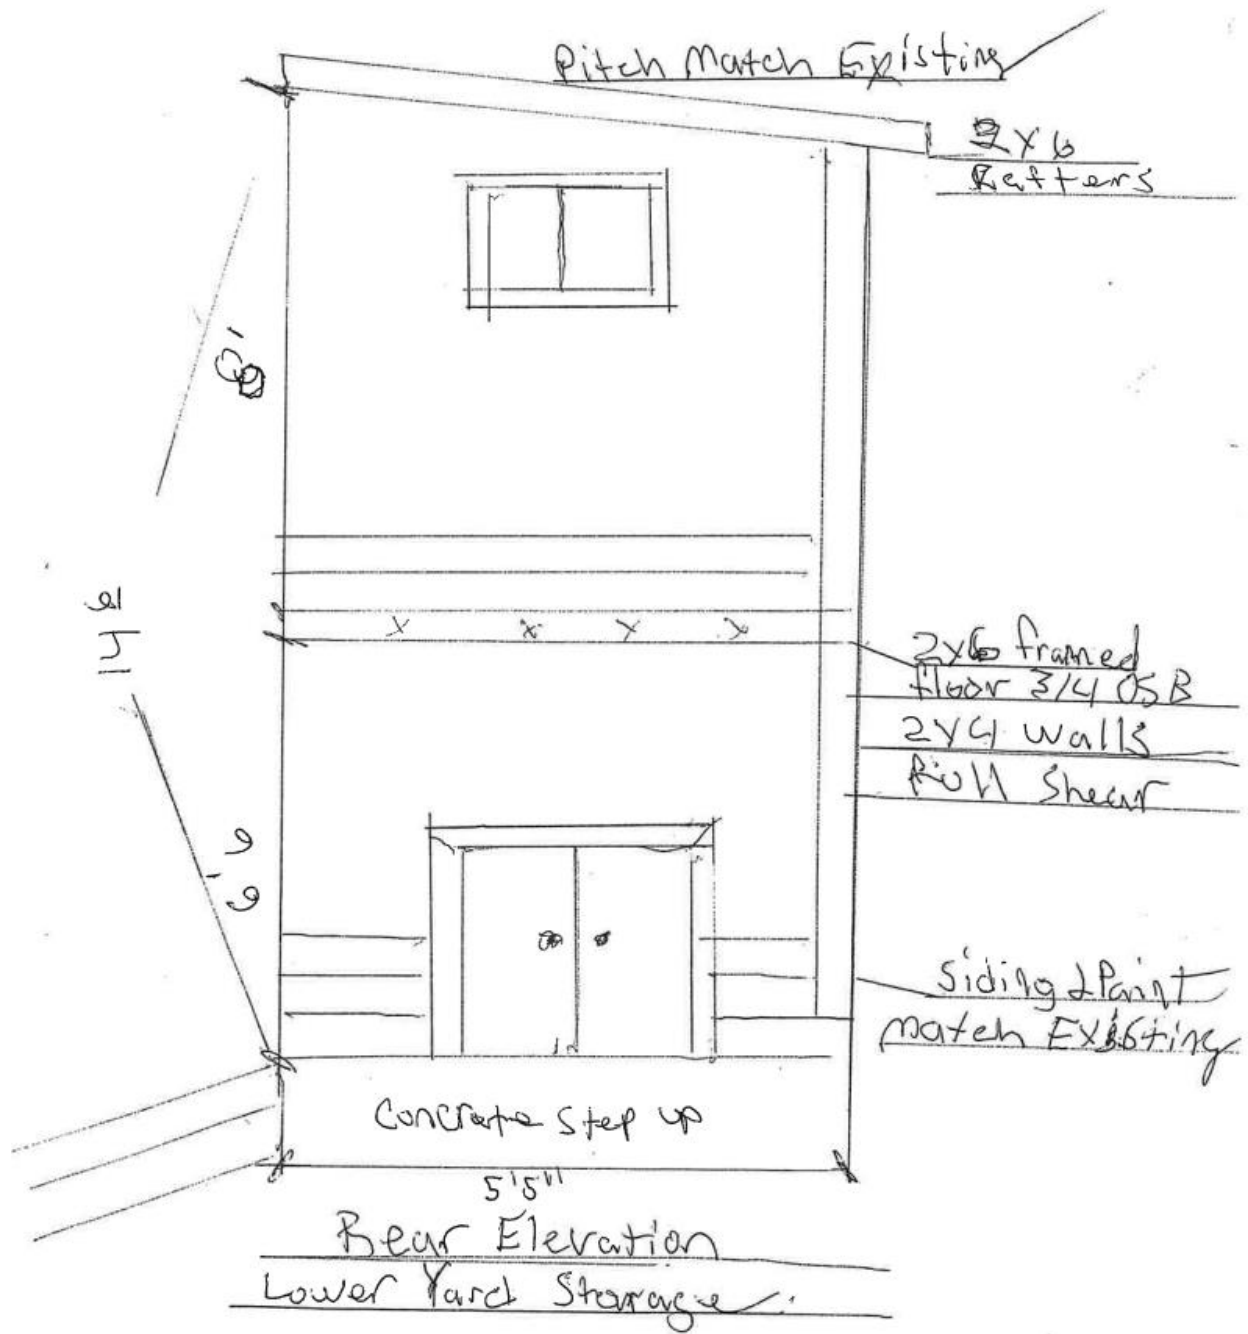 Pitch Match Existing
2x6
Rafters
8'
2x6 framed
floor 3/4 OSB
2x4 walls
Shear
Siding & Paint
Match Existing
Concrete Step up
5'5"
Rear Elevation
Lower Yard Storage